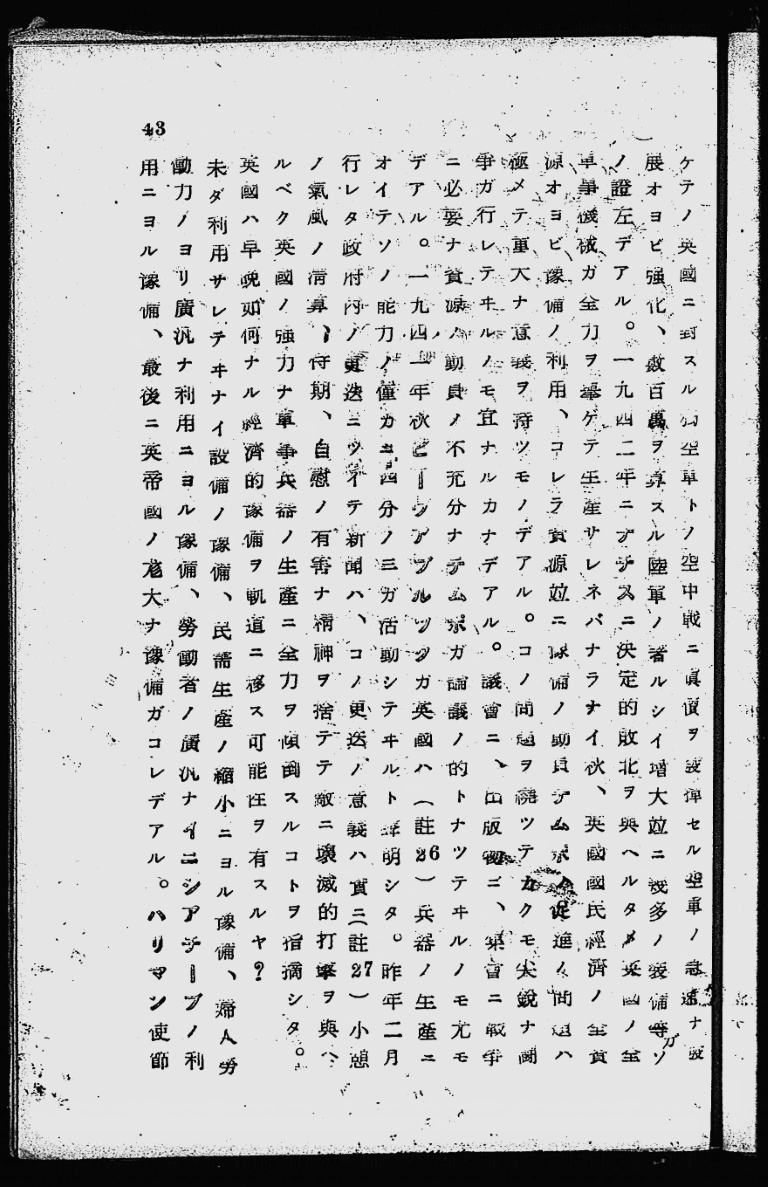 ケテノ英國ニ對スル 空軍トノ空中戰ニ眞價ヲ發揮セル空軍ノ急速ナ發
展オヨビ強化、數百萬ヲ算スル陸軍ノ著ルシイ增大竝ニ幾多ノ裝備等ガソ
ノ證左デアル。一九四二年ニナチスニ決定的敗北ヲ與ヘルタメ英國ノ全
軍事機械ガ全力ヲ擧ゲテ生產サレネバナラナイ秋、英國國民經濟ノ全資
源オヨビ豫備ノ利用、コレラ資源竝ニ豫備ノ動員テムポノ促進ノ問題ハ
極メテ重大ナ意義ヲ持ツモノデアル。コノ問題ヲ繞ツテカクモ尖銳ナ鬪
爭ガ行レテヰルノモ宜ナルカナデアル。議會ニ、出版物ニ、集會ニ戰爭
ニ必要ナ資源ノ動員ノ不充分ナテムポガ論議ノ的トナツテヰルノモ尤モ
デアル。一九四一年秋ビーヴアブルツクガ英國ハ(註26)兵器ノ生產ニ
オイテソノ能力ノ僅カニ四分ノ三ガ活動シテヰルト 明シタ。昨年二月
行レタ政府內ノ更迭ニツイテ新聞ハ、コノ更迭ノ意義ハ實ニ(註27)小憩
ノ氣風ノ淸算、待期、自慰ノ有害ナ精神ヲ捨テテ敵ニ壞滅的打擊ヲ與ヘ
ルベク英國ノ強力ナ軍爭兵器ノ生產ニ全力ヲ傾倒スルコトヲ指摘シタ。
英國ハ早晩如何ナル經濟的豫備ヲ軌道ニ移ス可能性ヲ有スルヤ?
未ダ利用サレテヰナイ設備ノ豫備、民需生產ノ縮小ニヨル豫備、婦人勞
働力ノヨリ廣汎ナ利用ニヨル豫備、勞働者ノ廣汎ナイニシアチーブノ利
用ニヨル豫備、最後ニ英帝國ノ尨大ナ豫備ガコレデアル。ハリマン使節
43